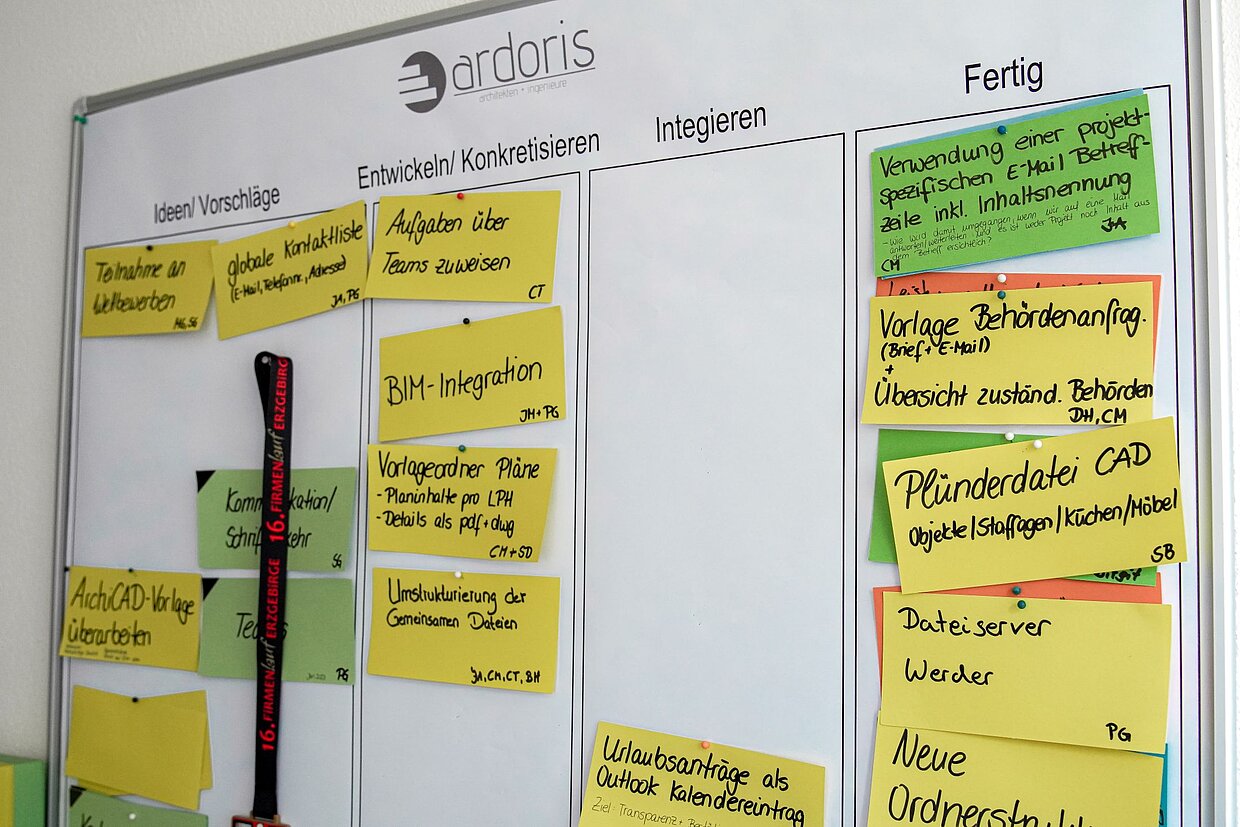 ardoris
architekten + ingenieure
Ideen/ Vorschläge
Teilnahme an
Wettbewerben
MG, SG
globale Kontaktliste
(E-Mail, Telefonnr., Adresse)
JA, PG
16. FIRMENlauf ERZGEBIRG
16. FIRMENlauf ERZGEBIRGE
Kommunikation/
Schriftverkehr
SG
Teams
PG
ArchiCAD-Vorlage
überarbeiten
Entwickeln/ Konkretisieren
Aufgaben über
Teams zuweisen
CT
BIM-Integration
JM + PG
Vorlageordner Pläne
- Planinhalte pro LPH
- Details als pdf + dwg
CM + SD
Umstrukturierung der
Gemeinsamen Dateien
JA, CM, CT, BH
Integieren
Urlaubsanträge als
Outlook Kalendereintrag
Ziel: Transparenz +
Fertig
Verwendung einer projekt-
spezifischen E-Mail Betreff-
zeile inkl. Inhaltsnennung
- Wie wird damit umgegangen, wenn wir auf eine Mail
antworten/weiterleiten und es ist weder Projekt noch Inhalt aus
dem Betreff ersichtlich?
JA
CM
Vorlage Behördenanfrag.
(Brief + E-Mail)
+
Übersicht zuständ. Behörden
DH, CM
Plünderdatei CAD
Objekte/Staffagen/Küchen/Möbel
SB
Dateiserver
Werder
PG
Neue
Ordnerstrukt